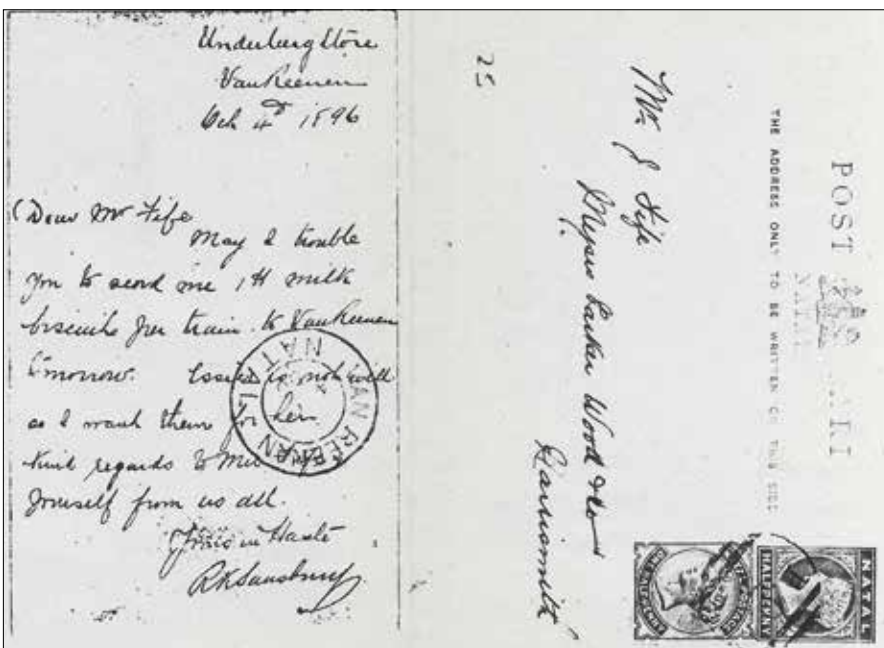 Underberg Store
Van Reenen
Oct 4th 1896
Dear Mr Fife
May I trouble
you to send me 1 lb milk
biscuits per train to Van Reenen
tomorrow. Essie is not well
as I want them for her.
Kind regards to Mrs
yourself from us all.
Yours in Haste
R K Sansbury
VAN REENAN
NATAL
25
Mr J Fife
Messrs Parker Wood & Co
Harrismith
POST CARD
NATAL
THE ADDRESS ONLY TO BE WRITTEN ON THIS SIDE
NATAL
HALFPENNY
POSTAGE